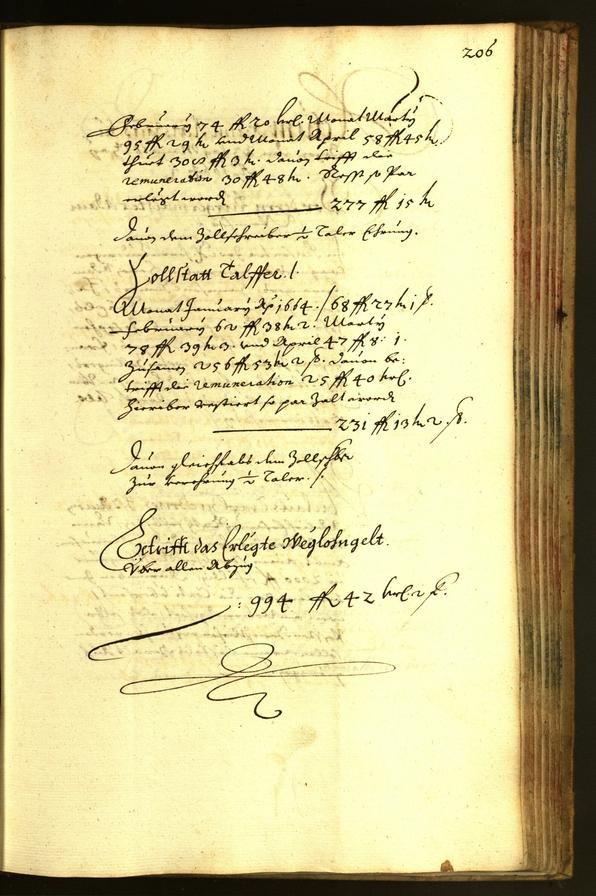 206
February 74 ff 20 krl. Monat Marty
95 ff 29 kr und Monat April 58 ff 45 kr
thuet 308 ff 3 kr. dauon trifft die
remuneration 30 ff 48 kr. Resst so Par
erlegt worden
277 ff 15 kr
dauon dem Zollschreiber ½ Taler Ehrung.
Zollstatt Talffer.
Monat January Ao 1664. 68 ff 27 kr 1 f.
February 62 ff 38 kr 2. Marty
78 ff 39 kr 3. und April 47 ff 8: 1.
Zusamen 256 ff 53 kr 2 f. dauon be:
trifft die remuneration 25 ff 40 krl.
hieriber restiert so par Zalt worden
231 ff 13 kr 2 f.
dauon gleichfals dem Zollschreiber
Zur verehrung ½ Taler.
Betrifft das Erlegte Weglohngelt.
Über allen Abzug
: 994 ff 42 krl. 2 f.